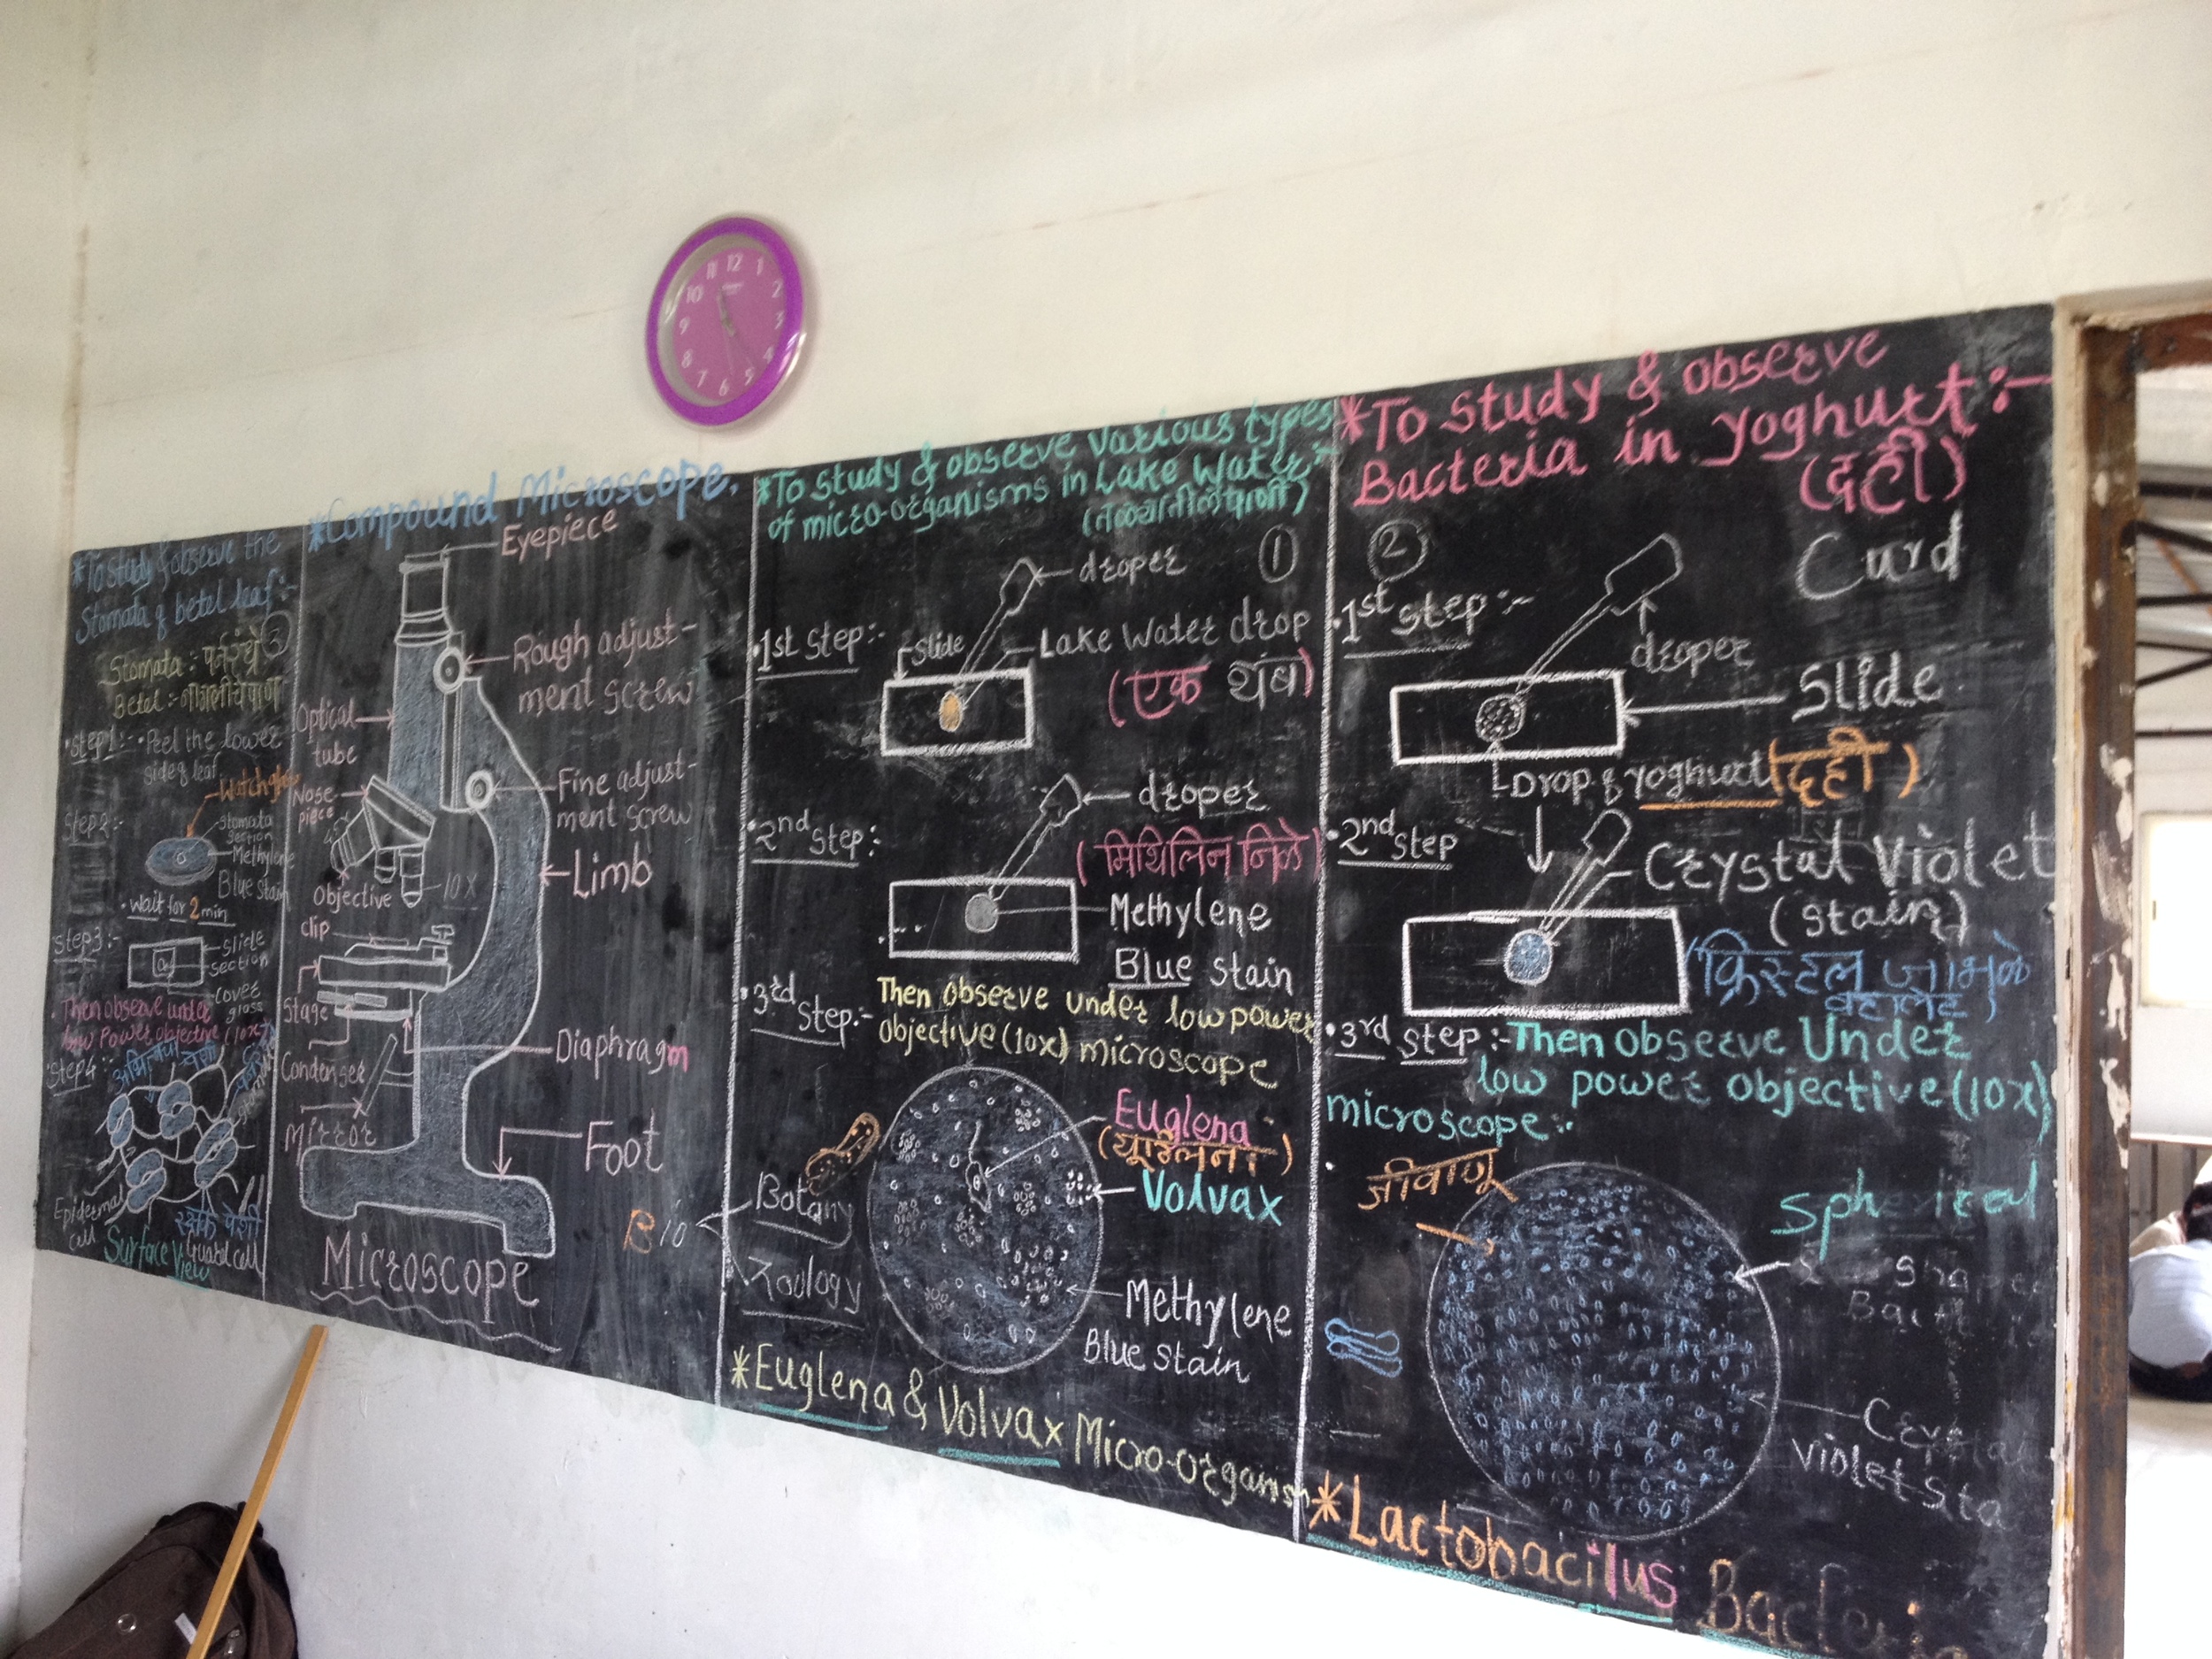 12
1
2
3
4
5
6
7
8
9
10
11
*To study & observe the
Stomata of betel leaf:-
③
Stomata : पर्णरंध्रे
Betel :-
•Step1:- • Peel the lower
side of leaf
Step2:-
Stomata
section
Methylene
Blue stain
• wait for 2 min
Step3:-
slide
section
cover
glass
Then observe under
low Power objective (10x)
Step4:-
Epidermal
cell
रक्षक पेशी
Guard cell
Surface View
*Compound Microscope.
Eyepiece
Rough adjust-
ment screw
Optical
tube
Nose
piece
Fine adjust-
ment screw
Limb
10X
Objective
clip
Stage
Condenser
Diaphragm
Mirror
Foot
Microscope
Bio
Botany
Zoology
*To study & observe various types
of micro-organisms in Lake Water:-
①
droper
•1st Step:-
Slide
Lake Water drop
(एक थंब)
droper
•2nd Step:
(मिथिलिन निळे)
Methylene
Blue Stain
•3rd Step.-
Then observe under low power
objective (10x) microscope
Euglena
(यूग्लिना)
Volvax
Methylene
Blue stain
*Euglena & Volvax Micro-organish
*To study & observe
Bacteria in yoghurt:-
(दही)
②
Curd
•1st step :-
droper
Slide
Drop of yoghurt (दही)
•2nd step
Crystal Violet
(stain)
(क्रिस्टल जांभळे
व्हालेट)
•3rd step :- Then observe Under
low power objective (10x)
microscope:-
जीवाणू
Spherical
Shaped
Crystal
violet Sta
*Lactobacilus Bacteria